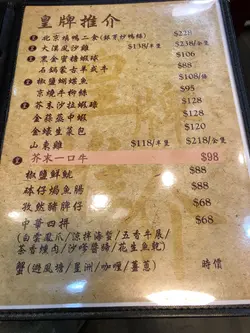 皇牌推介
北京填鴨二食(銀芽炒鴨絲) $228
大漠風沙雞 $138/半隻 $238/全隻
黑金蜜糖蝦球 $88
石鍋蒙古羊或牛 $88
椒鹽蝴蝶魚 $108/條
京燒手柳絲 $95
芥末沙拉蝦球 $88
金蒜蒸中蝦 $88
金蠔生菜包 $88
山東雞 $118/半隻 $218/全隻
芥末一口牛 $98
椒鹽鮮魷 $88
砵仔焗魚腸 $68
孜然豬脾仔 $68
中華四拼 $68
(白雲鳳爪/涼拌海蜇/五香牛展/
茶香燻肉/沙嗲醬腸/花生魚乾)
蟹(避風塘/星洲/咖喱/薑蔥) 時價